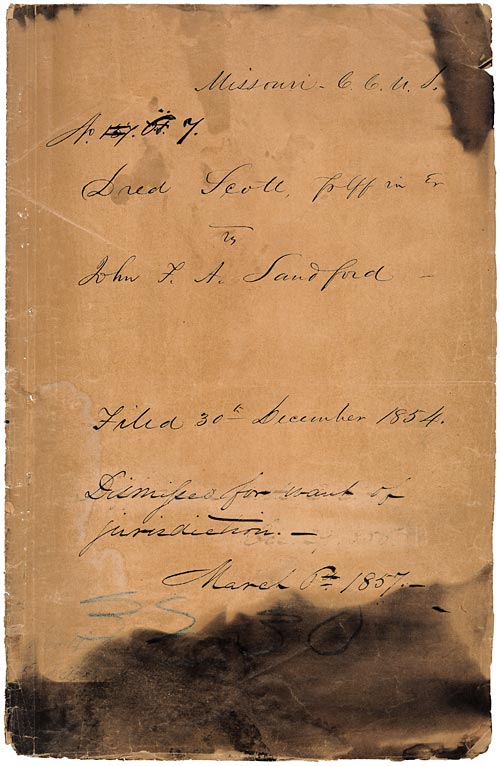 Missouri - C. C. U. S.
No. 137. 65. 7.
Dred Scott, pltff in Er
vs
John F. A. Sandford -
Filed 30th December 1854.
Dismissed for want of
jurisdiction. -
March 6th 1857. -